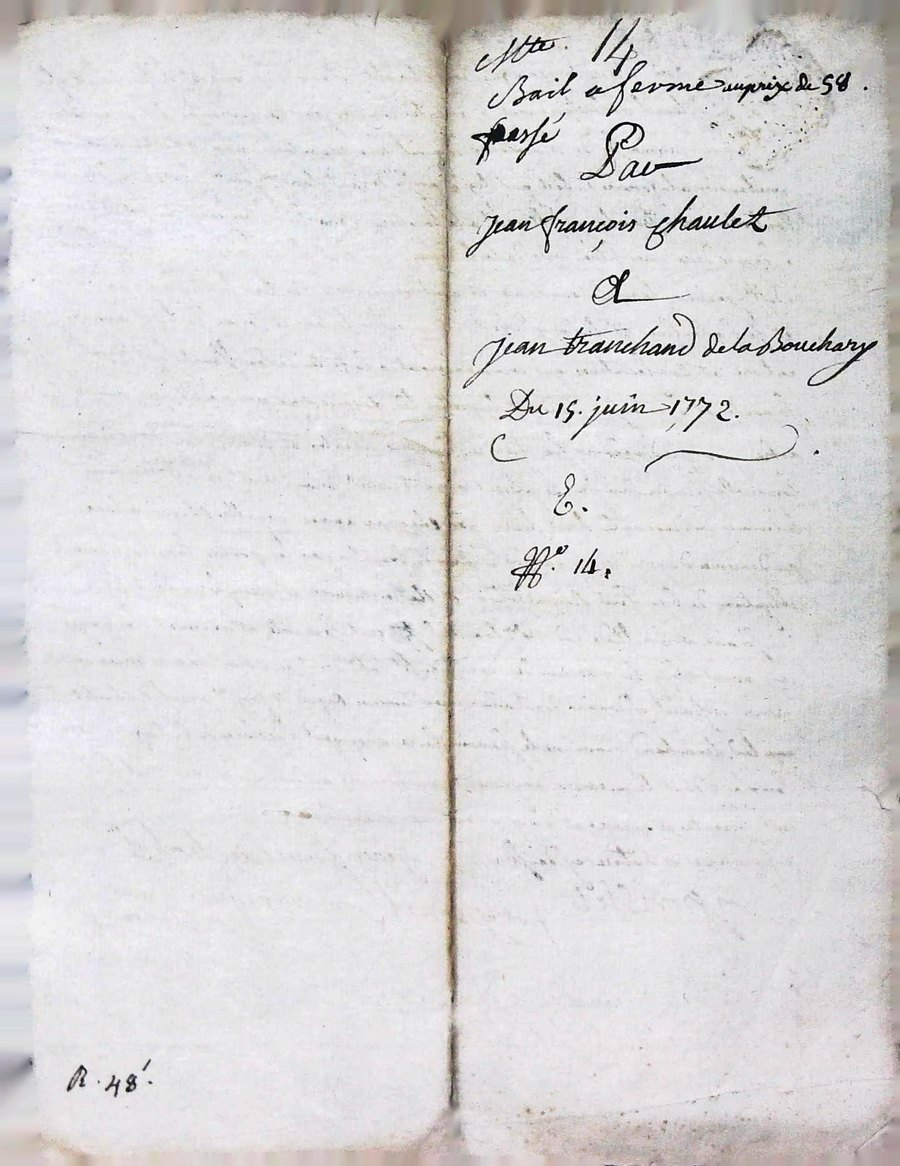 Mtte. 14
Bail a ferme au prix de 58.
passé
Par
jean françois chaulet
A
jean tranchand de la Bouchary
Du 15. juin 1772.
E.
No. 14.
R. 48